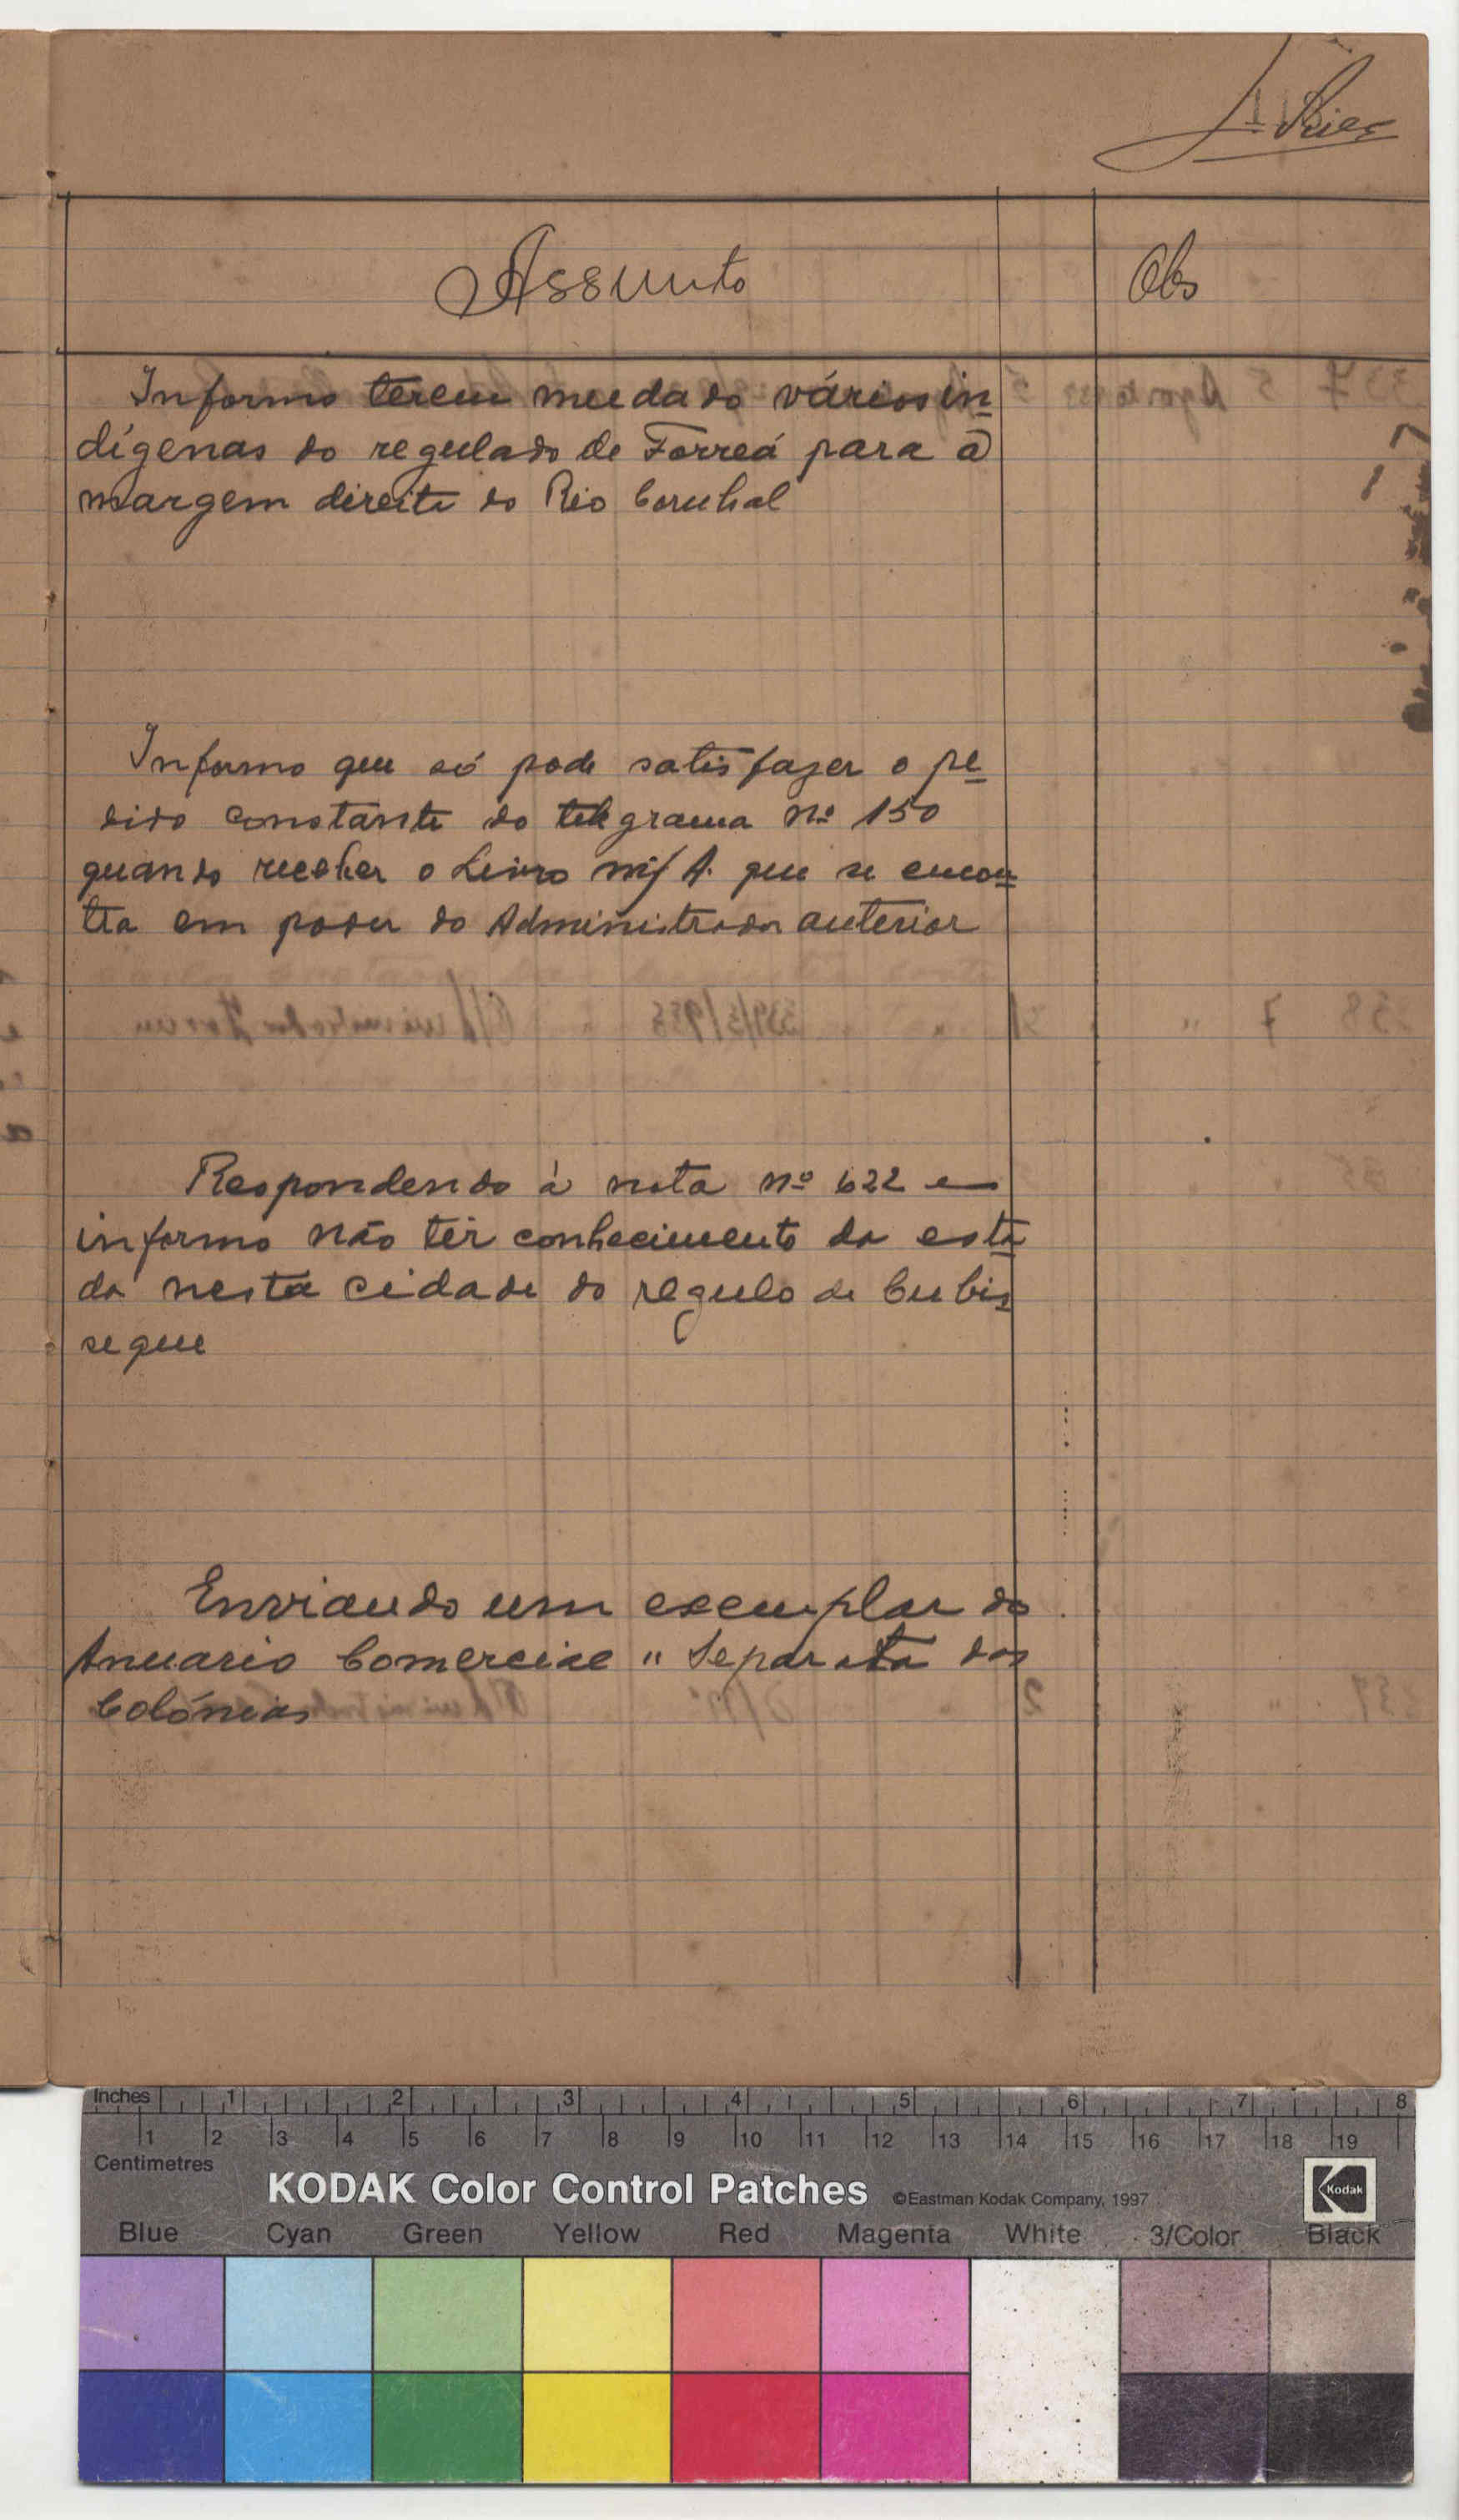 Assunto
Obs
Informo terem mudado vários in
dígenas do regulado de Forreá para a
margem direita do Rio Corubal
Informo que só pode satisfazer o pe
dido constante do telegrama nº 150
quando receber o Livro m/A. que se encon
tra em poder do Administrador anterior
Respondendo á nota nº 622 e
informo não ter conhecimento da esta
da nesta cidade do regulo de Cubis
seque
Enviando um exemplar do
Anuario Comercial " Separata das
Colónias
Inches 1 2 3 4 5 6 7 8
1 2 3 4 5 6 7 8 9 10 11 12 13 14 15 16 17 18 19
Centimetres
KODAK Color Control Patches ©Eastman Kodak Company, 1997 Kodak
Blue Cyan Green Yellow Red Magenta White 3/Color Black